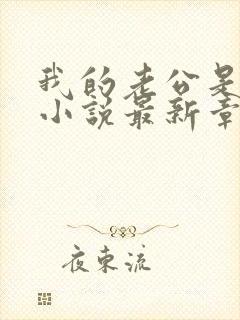 我的老公是
小说最新章
夜东流